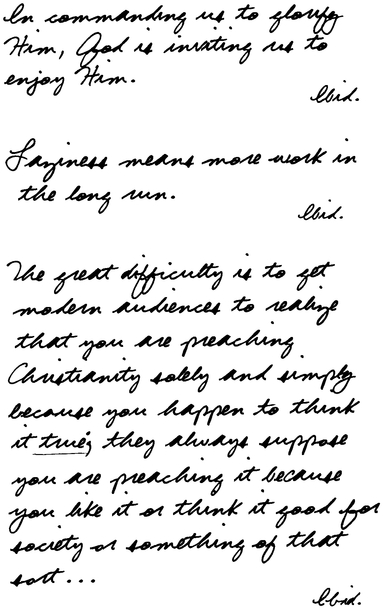 In commanding us to glorify
Him, God is inviting us to
enjoy Him.
Ibid.
Laziness means more work in
the long run.
Ibid.
The great difficulty is to get
modern audiences to realize
that you are preaching
Christianity solely and simply
because you happen to think
it true; they always suppose
you are preaching it because
you like it or think it good for
society or something of that
sort...
Ibid.